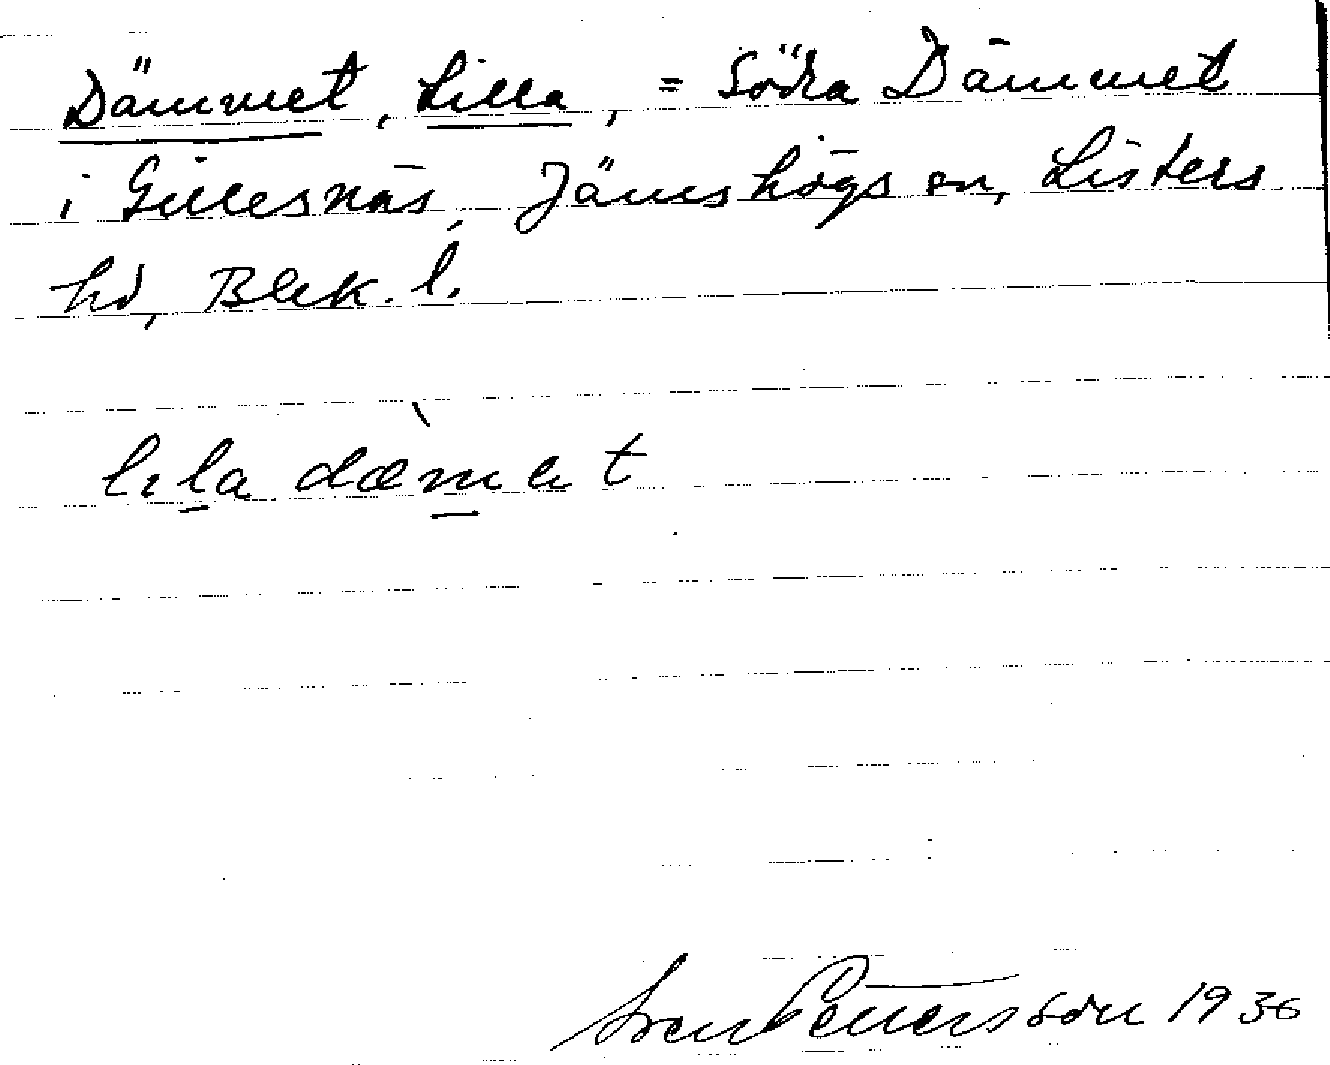 Dämmet, Lilla, = Södra Dämmet
i Gillesnäs, Jämshögs sn, Listers
hd, Blek. l.
lıla dæ̀mət
Sven Pettersson 1936